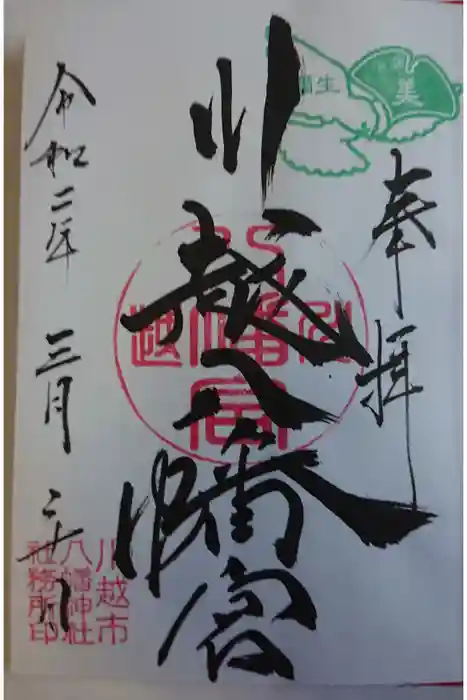 奉拝
川越八幡宮
令和二年 三月 二十八日
川越市
八幡神社
社務所印
美
生